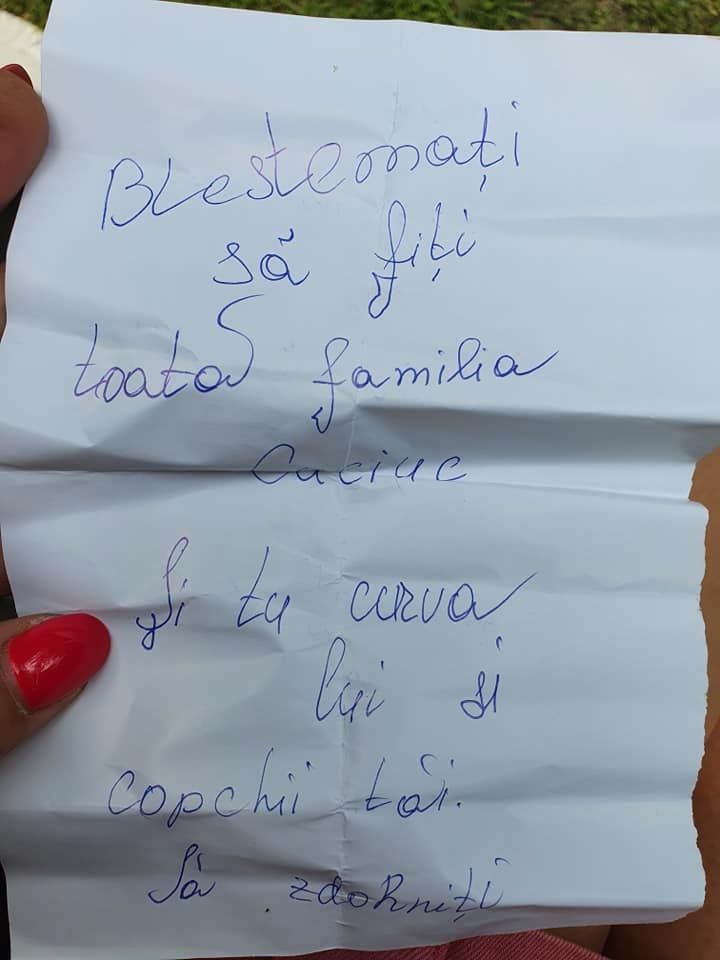 Blestemați
să fiți
toată familia
Caciuc
Și tu curva
lui și
copchii tăi.
Să zdohniți